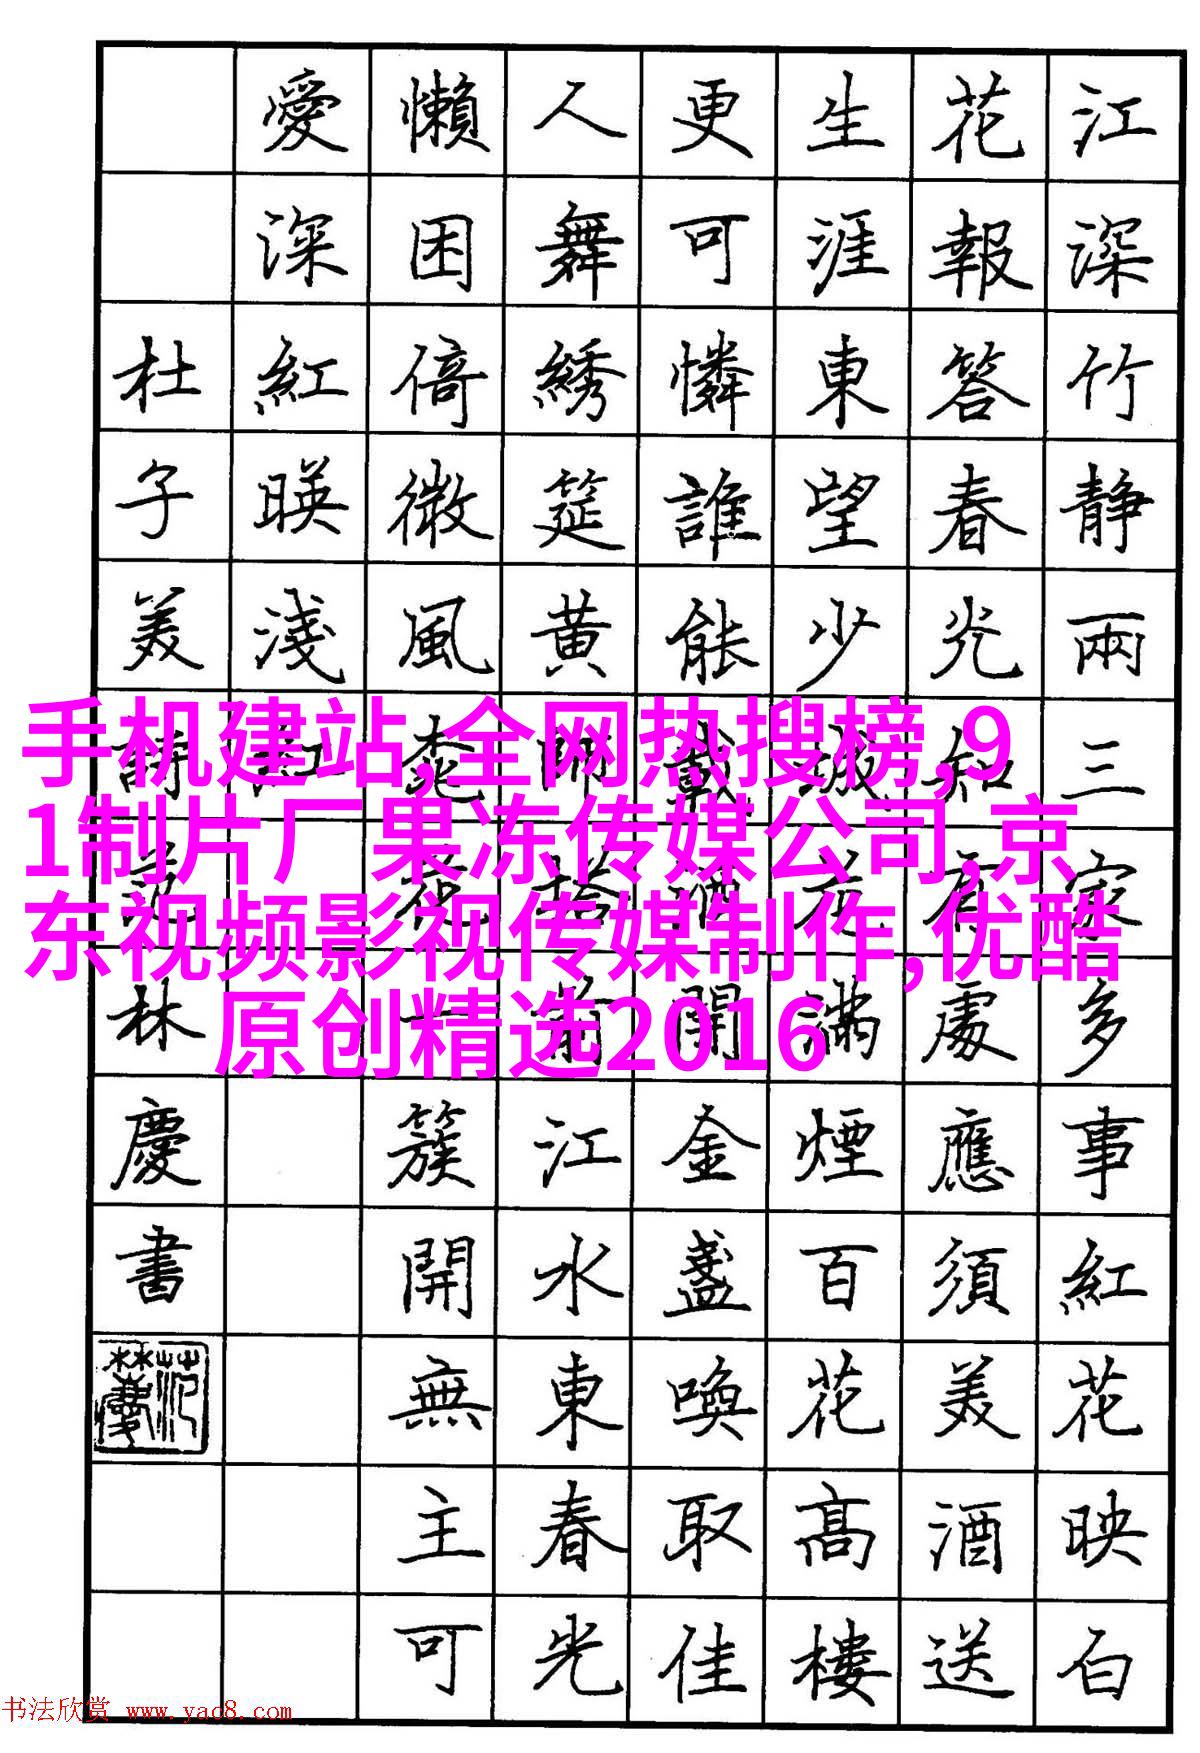 江深竹静兩三家多事紅花映白
花報答春光知有處應須美酒送
生涯東望少城花滿煙百花高樓
更可憐誰能載酒開金盞喚取佳
人舞綉筵黄師塔前江水東春光
懶困倚微風桃花一簇開無主可
愛深紅暎淺紅
杜子美詩范林慶書
手机建站,全网热搜榜,9
1制片厂果冻传媒公司,京
东视频影视传媒制作,优酷
原创精选2016
书法欣赏 www.yac8.com